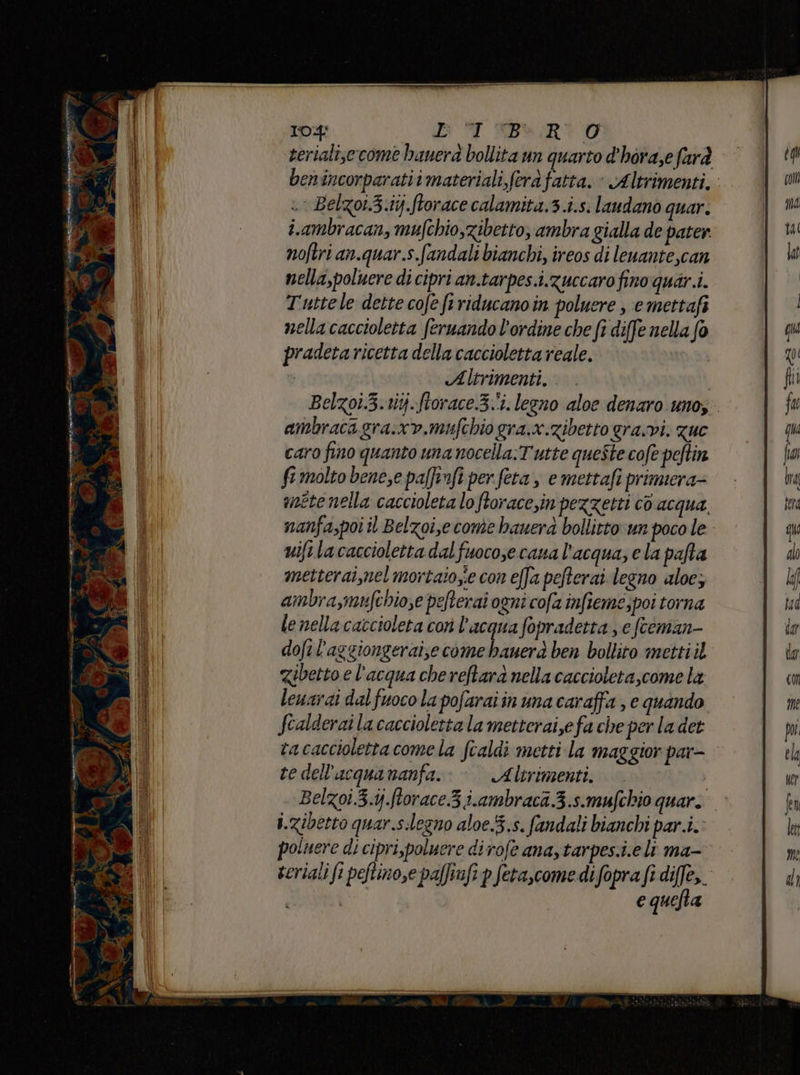 104 LIBRO
teriali,e come hauerà bollita un quarto d'hora,e farà
ben incorparati i materiali,ſerà fatta. Altrimenti.
Belzoi.℥.iij.ſtorace calamita.℥.i.s. laudano quar.
i.ambracan, muſchio,zibetto, ambra gialla de pater
noſtri an.quar.s.ſandali bianchi, ireos di leuante,can
nella,poluere di cipri an.tarpes.i.zuccaro fino quar.i.
Tutte le dette coſe ſi riducano in poluere , e mettaſi
nella caccioletta ſeruando l'ordine che ſi diſſe nella ſo
pradeta ricetta della caccioletta reale.
Altrimenti.
Belzoi.℥.iiij.ſtorace.℥.i. legno aloe denaro uno,
ambracā gra.xv.muſchio gra.x.zibetto gra.vi. zuc
caro fino quanto una nocella.Tutte queſte coſe peſtin
ſi molto bene,e paſſinſi per ſeta , e mettaſi primiera-
mēte nella caccioleta lo ſtorace,in pezzetti cō acqua
nanfa,poi il Belzoi,e come hauerà bollitto un poco le
uiſi la caccioletta dal fuoco,e caua l'acqua, e la paſta
metterai,nel mortaio,e con eſſa peſterai legno aloe,
ambra,muſchio,e peſterai ogni coſa inſieme,poi torna
le nella caccioleta con l'acqua ſopradetta , e ſceman-
doſi l'aggiongerai,e come hauerà ben bollito metti il
zibetto e l'acqua che reſtarà nella caccioleta,come la
leuarai dal fuoco la poſarai in una caraffa , e quando
ſcalderai la caccioletta la metterai,e fa che per la det
ta caccioletta come la ſcaldi metti la maggior par-
te dell'acqua nanfa. Altrimenti.
Belzoi.℥.ij.ſtorace.℥ i.ambracā.℥.s.muſchio quar.
i.zibetto quar.s.legno aloe.℥.s. ſandali bianchi par.i.
poluere di cipri,poluere di roſe ana, tarpes.i.e li ma-
teriali ſi peſtino,e paſſinſi p ſeta,come di ſopra ſi diſſe,
e queſta